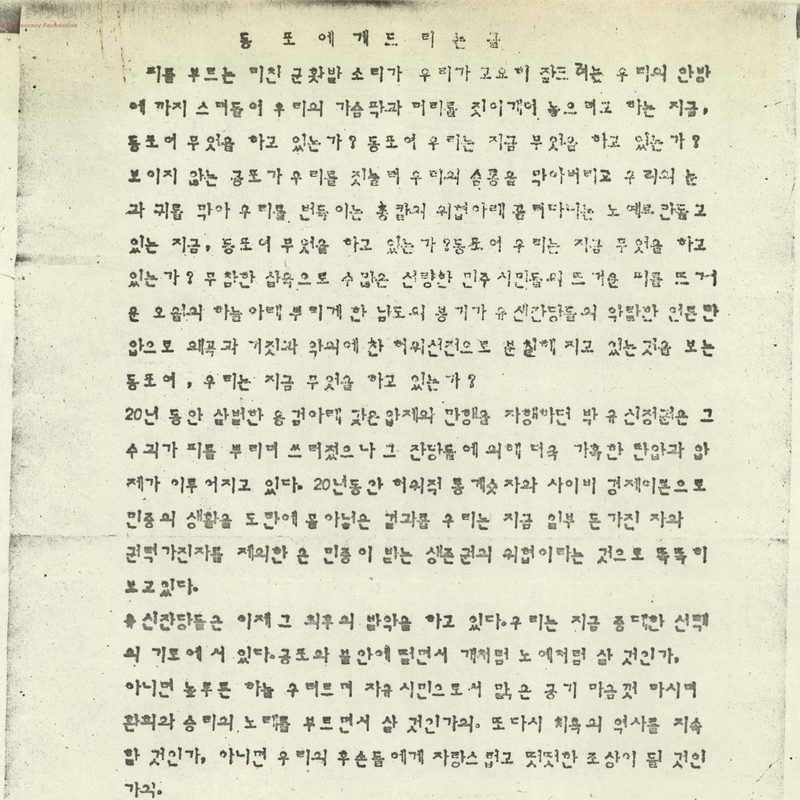 Democracy Foundation
동포에게 드리는 글
피를 부르는 미친 군홧발 소리가 우리가 고요히 잠드려는 우리의 안방
에 까지 스며들어 우리의 가슴팍과 머리를 짓이겨 놓으려고 하는 지금,
동포여 무엇을 하고 있는가? 동포여 우리는 지금 무엇을 하고 있는가?
보이지 않는 공포가 우리를 짓눌러 우리의 숨통을 막아버리고 우리의 눈
과 귀를 막아 우리를 번득이는 총칼의 위협아래 끌려다니는 노예로 만들고
있는 지금, 동포여 무엇을 하고 있는가?동포여 우리는 지금 무엇을 하고
있는가? 무참한 살육으로 수많은 선량한 민주시민들의 뜨거운 피를 뜨거
운 오월의 하늘아래 뿌리게 한 남도의 봉기가 유신잔당들의 악랄한 언론탄
압으로 왜곡과 거짓과 악의에 찬 허위선전으로 분칠해 지고 있는것을 보는
동포여, 우리는 지금 무엇을 하고 있는가?
20년 동안 살벌한 총검아래 갖은압제와 만행을 자행하던 박유신정권은 그
수괴가 피를 뿌리며 쓰러졌으나 그 잔당들에 의해 더욱 가혹한 탄압과 압
제가 이루어지고 있다. 20년동안 허위적 통계숫자와 사이비 경제이론으로
민중의 생활을 도탄에 몰아넣은 결과를 우리는 지금 일부 돈가진 자와
권력가진자를 제외한 온 민중이 받는 생존권의 위협이라는 것으로 똑똑히
보고있다.
유신잔당들은 이제 그 최후의 발악을 하고 있다.우리는 지금 중대한 선택
의 기로에 서 있다.공포와 불안에 떨면서 개처럼 노예처럼 살 것인가,
아니면 높푸른 하늘 우러르며 자유시민으로서 맑은 공기 마음껏 마시며
환희와 승리의 노래를 부르면서 살 것인가의. 또다시 치욕의 역사를 지속
할 것인가, 아니면 우리의 후손들에게 자랑스럽고 떳떳한 조상이 될 것인
가의.